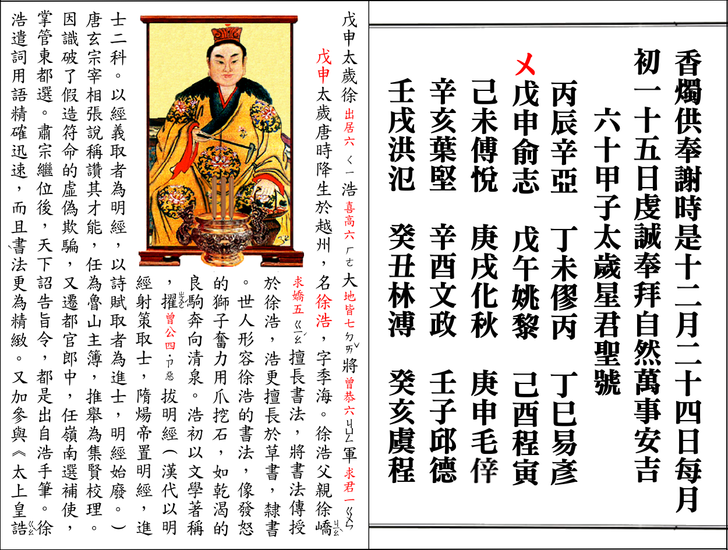 香燭供奉謝時是十二月二十四日每月
初一十五日虔誠奉拜自然萬事安吉
六十甲子太歲星君聖號
丙辰辛亞 丁未僇丙 丁巳易彥
戊申俞志 戊午姚黎 己酉程寅
己未傅悅 庚戌化秋 庚申毛倖
辛亥葉堅 辛酉文政 壬子邱德
壬戌洪氾 癸丑林溥 癸亥虞程
戊申太歲徐出居六浩喜高六大地皆七將曾恭六軍求君一
戊申太歲唐時降生於越州，名徐浩，字季海。徐浩父親徐嶠
求嬌五擅長書法，將書法傳授
於徐浩，浩更擅長於草書，隸書
。世人形容徐浩的書法，像發怒
的獅子奮力用爪挖石，如乾渴的
良駒奔向清泉。浩初以文學著稱
，擢曾公四拔明經（漢代以明
經射策取士，隋煬帝置明經，進
士二科。以經義取者為明經，以詩賦取者為進士，明經始廢。）
唐玄宗宰相張說稱讚其才能，任為魯山主簿，推舉為集賢校理。
因識破了假造符命的虛偽欺騙，又遷都官郎中，任嶺南選補使，
掌管東都選。肅宗繼位後，天下詔告旨令，都是出自浩手筆。徐
浩遣詞用語精確迅速，而且書法更為精緻。又加參與《太上皇誥